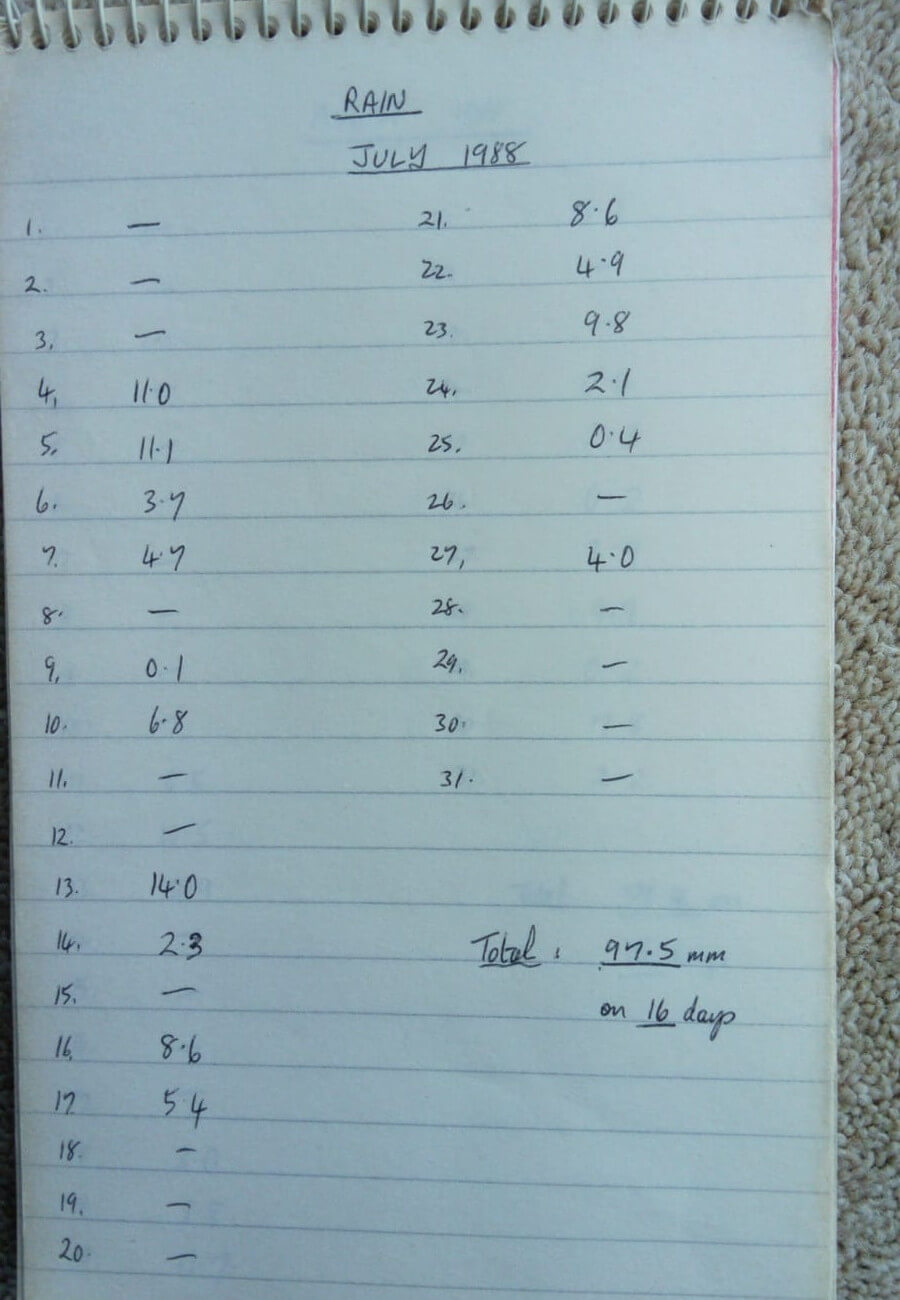 RAIN
JULY 1988
1. —
2. —
3. —
4. 11·0
5. 11·1
6. 3·7
7. 4·7
8. —
9. 0·1
10. 6·8
11. —
12. —
13. 14·0
14. 2·3
15. —
16. 8·6
17 5·4
18. —
19. —
20. —
21. 8·6
22. 4·9
23. 9·8
24. 2·1
25. 0·4
26. —
27, 4·0
28. —
29. —
30. —
31. —
Total : 97.5 mm
on 16 days